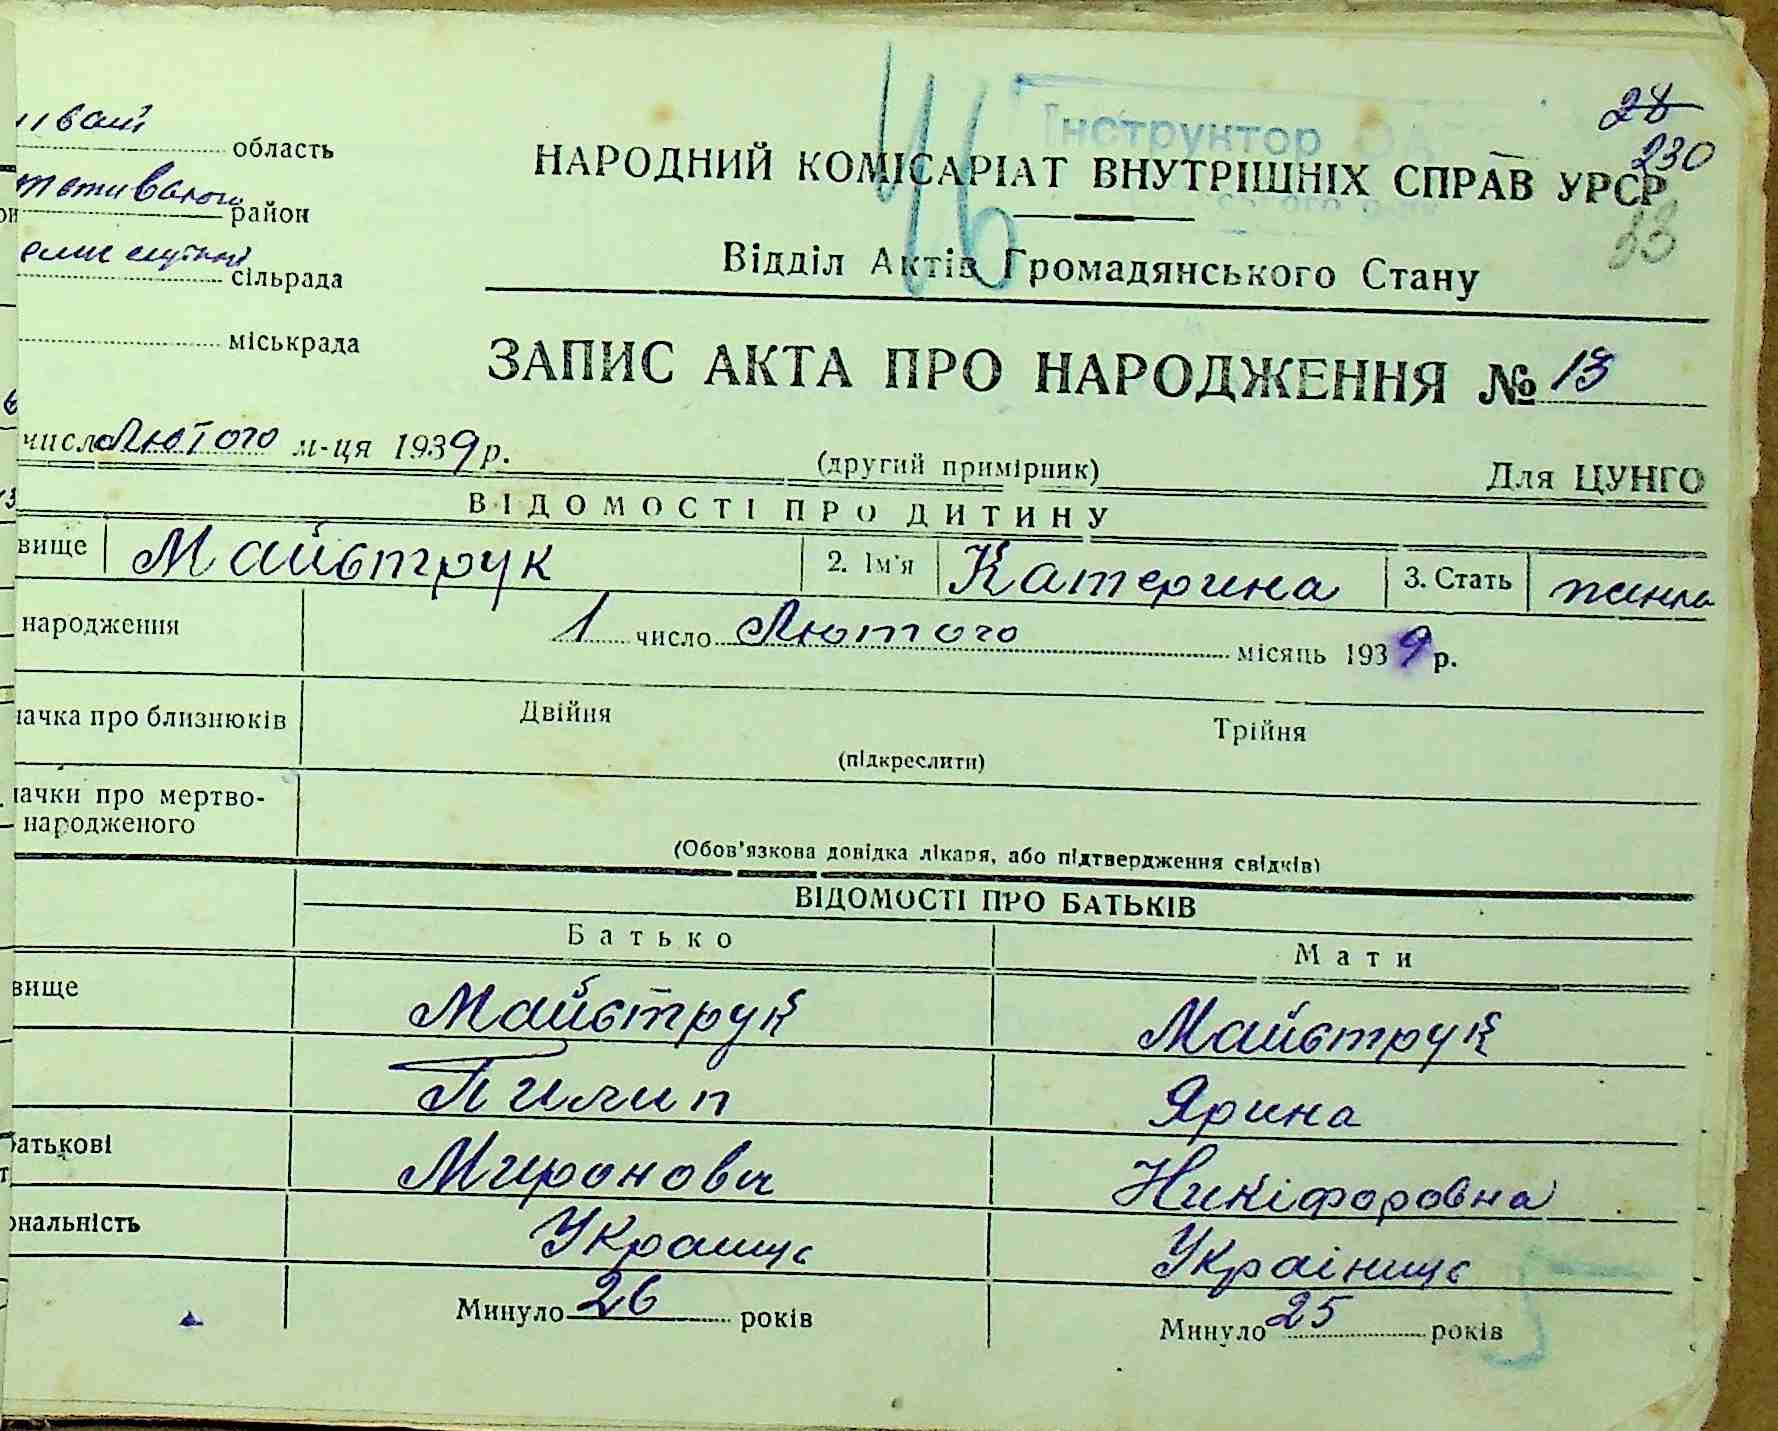 28
230
33
46
Інструктор
область
район
сільрада
міськрада
НАРОДНИЙ КОМІСАРІАТ ВНУТРІШНІХ СПРАВ УРСР
Відділ Актів Громадянського Стану
ЗАПИС АКТА ПРО НАРОДЖЕННЯ № 13
число Лютого м-ця 1939 р.
(другий примірник)
Для ЦУНГО
ВІДОМОСТІ ПРО ДИТИНУ
вище Майструк 2. Ім'я Катерина 3. Стать
народження 1 число Лютого місяць 1939 р.
ачка про близнюків Двійня Трійня
(підкреслити)
ачки про мертво-
народженого
(Обов'язкова довідка лікаря, або підтвердження свідків)
ВІДОМОСТІ ПРО БАТЬКІВ
Батько Мати
вище Майструк Майструк
Пилип Ярина
батькові Миронович Никіфоровна
ональність Українце
Минуло 26 років Минуло 25 років